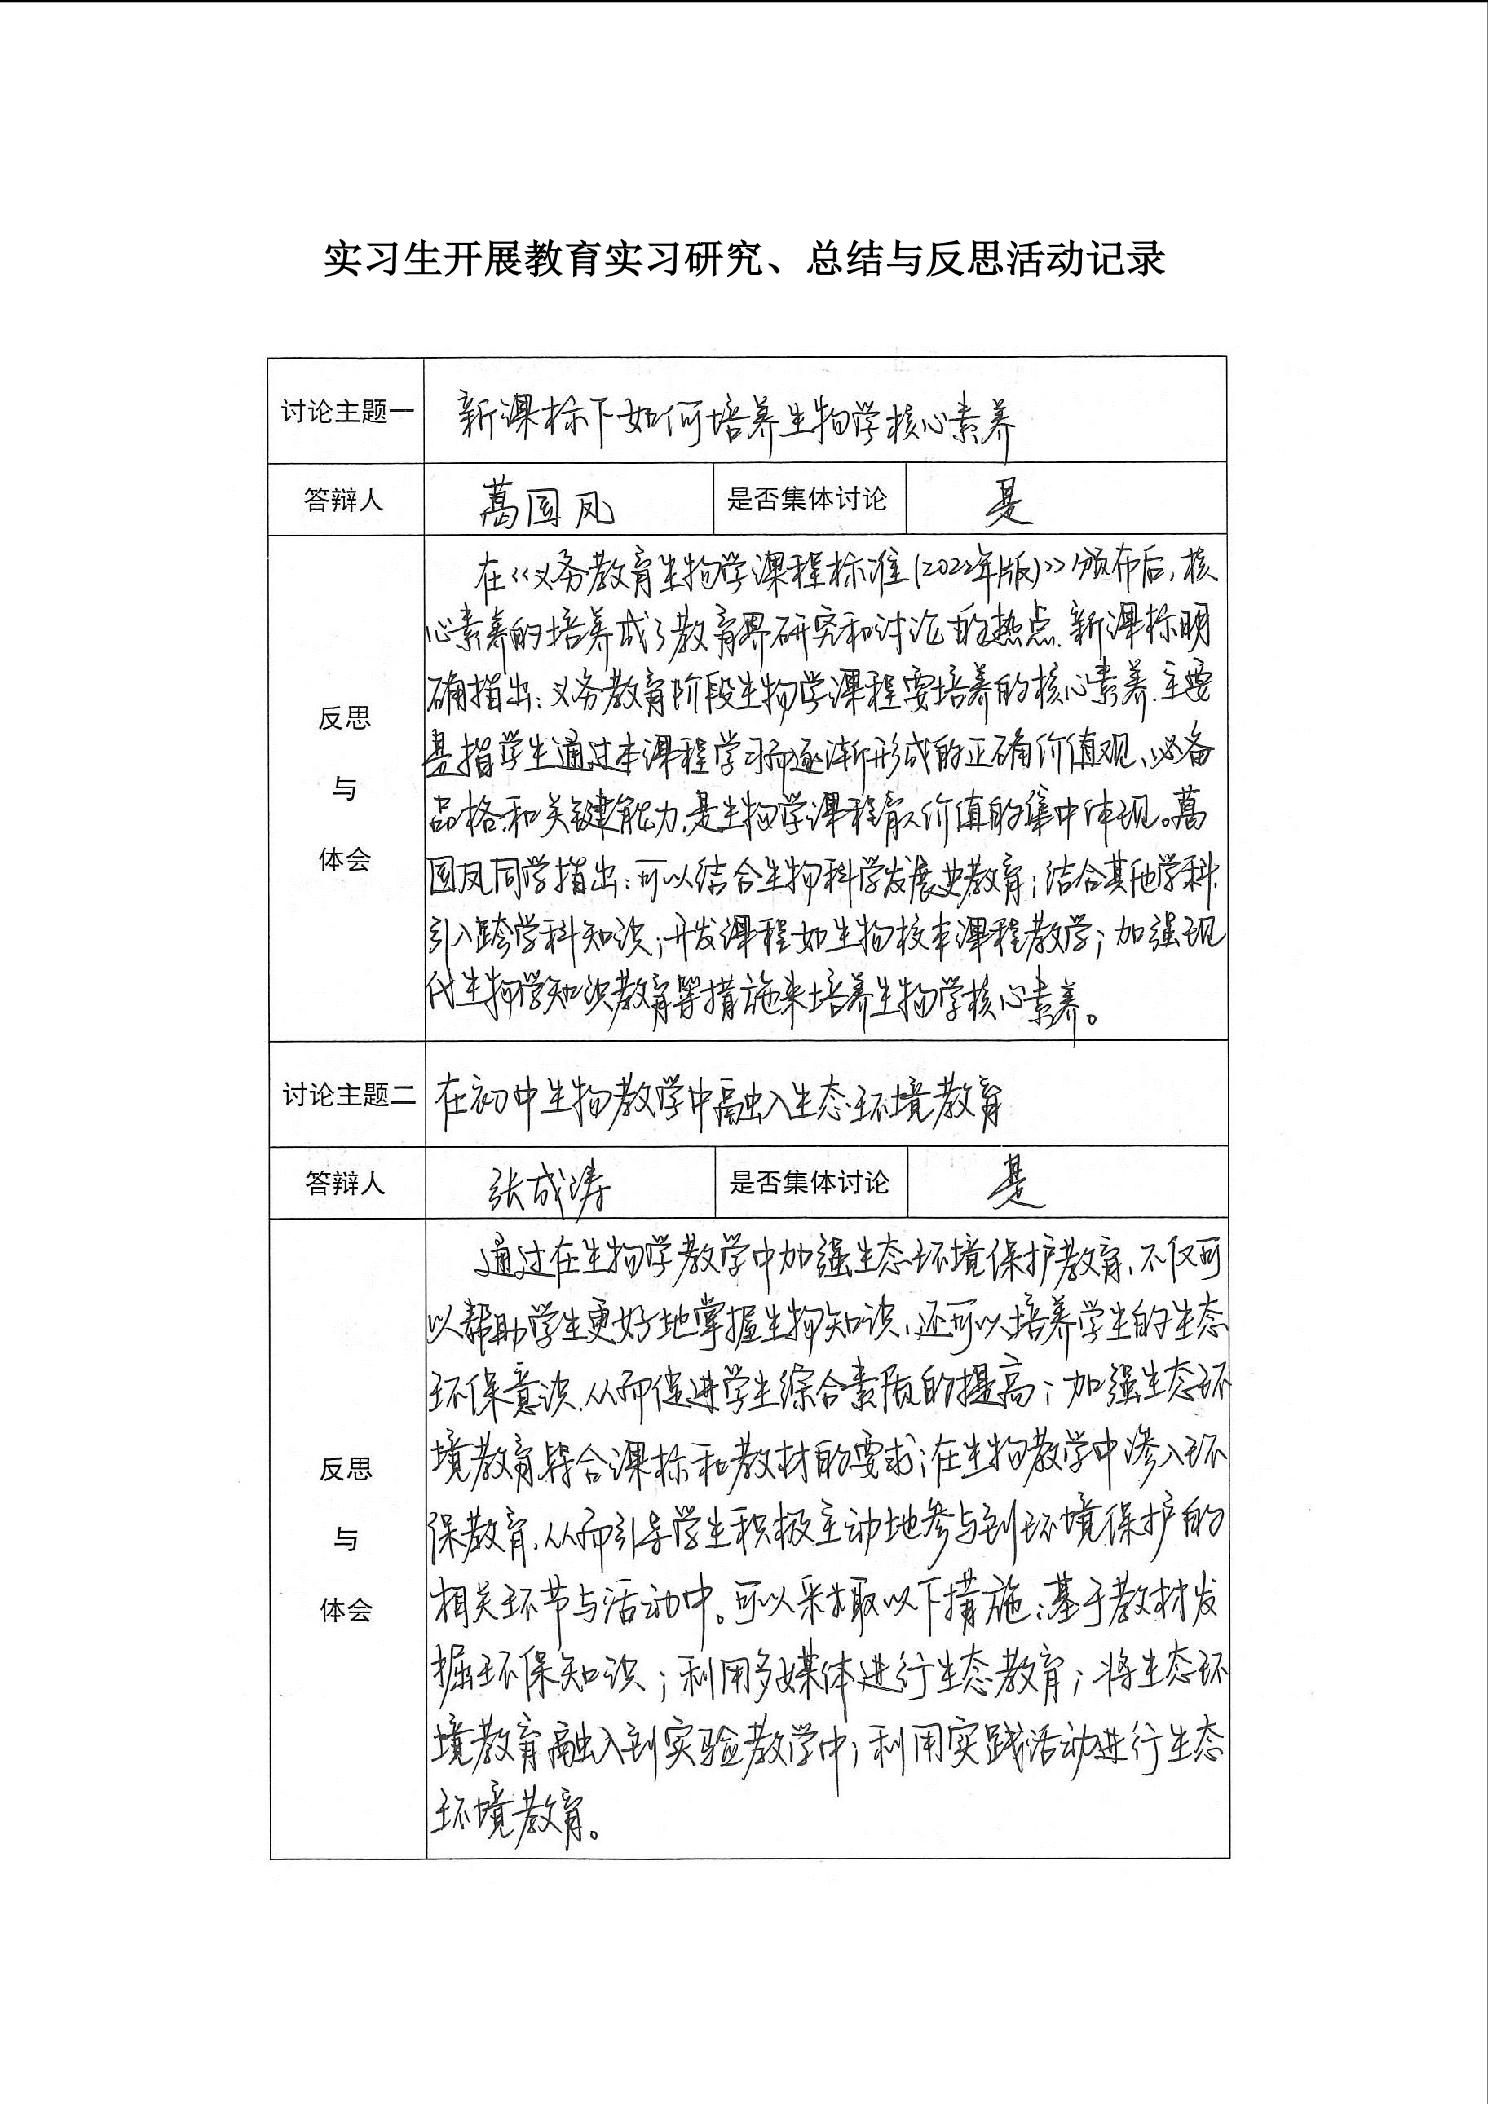 实习生开展教育实习研究、总结与反思活动记录
讨论主题一 新课标下如何培养生物学核心素养
答辩人 葛国凤 是否集体讨论 是
反思
与
体会
在《义务教育生物学课程标准(2022年版)》颁布后,核
心素养的培养成了教育界研究和讨论的热点.新课标明
确指出:义务教育阶段生物学课程要培养的核心素养.主要
是指学生通过本课程学习而逐渐形成的正确价值观、必备
品格和关键能力,是生物学课程育人价值的集中体现。葛
国凤同学指出:可以结合生物科学发展史教育;结合其他学科,
引入跨学科知识;开发课程如生物校本课程教学;加强现
代生物学知识教育等措施来培养生物学核心素养。
讨论主题二 在初中生物教学中融入生态环境教育
答辩人 张成涛 是否集体讨论 是
反思
与
体会
通过在生物学教学中加强生态环境保护教育,不仅可
以帮助学生更好地掌握生物知识,还可以培养学生的生态
环保意识,从而促进学生综合素质的提高;加强生态环
境教育符合课标和教材的要求;在生物教学中渗入环
保教育,从而引导学生积极主动地参与到环境保护的
相关环节与活动中。可以采取以下措施:基于教材发
掘环保知识;利用多媒体进行生态教育;将生态环
境教育融入到实验教学中;利用实践活动进行生态
环境教育。